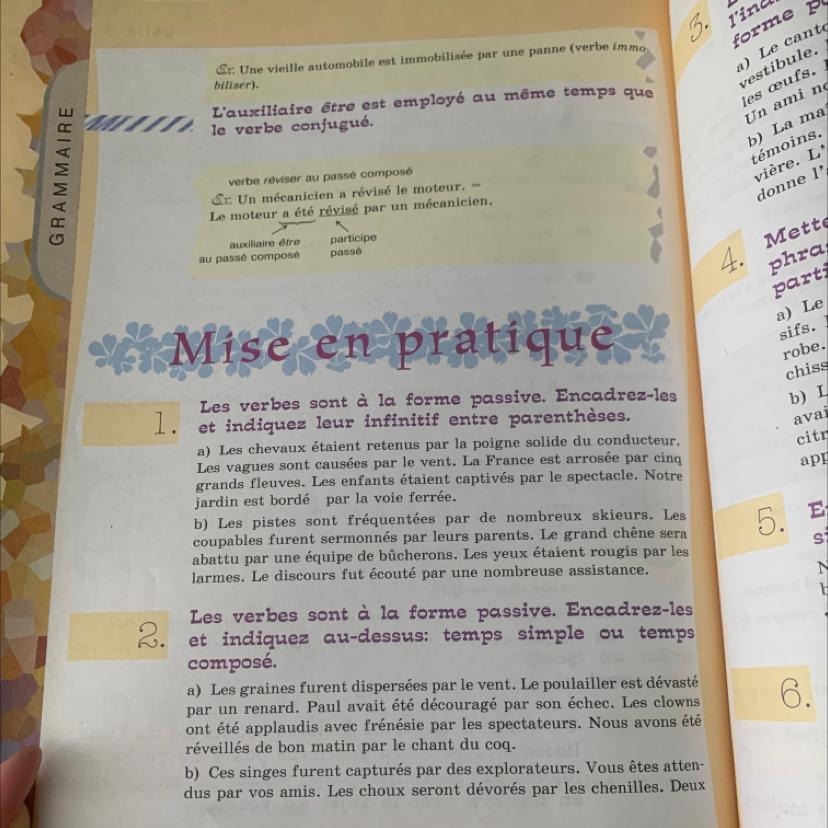 GRAMMAIRE
Ex. Une vieille automobile est immobilisée par une panne (verbe immo-
biliser).
L'auxiliaire être est employé au même temps que
le verbe conjugué.
verbe réviser au passé composé
Ex. Un mécanicien a révisé le moteur. =
Le moteur a été révisé par un mécanicien.
auxiliaire être
au passé composé
participe
passé
Mise en pratique
1. Les verbes sont à la forme passive. Encadrez-les
et indiquez leur infinitif entre parenthèses.
a) Les chevaux étaient retenus par la poigne solide du conducteur.
Les vagues sont causées par le vent. La France est arrosée par cinq
grands fleuves. Les enfants étaient captivés par le spectacle. Notre
jardin est bordé par la voie ferrée.
b) Les pistes sont fréquentées par de nombreux skieurs. Les
coupables furent sermonnés par leurs parents. Le grand chêne sera
abattu par une équipe de bûcherons. Les yeux étaient rougis par les
larmes. Le discours fut écouté par une nombreuse assistance.
2. Les verbes sont à la forme passive. Encadrez-les
et indiquez au-dessus: temps simple ou temps
composé.
a) Les graines furent dispersées par le vent. Le poulailler est dévasté
par un renard. Paul avait été découragé par son échec. Les clowns
ont été applaudis avec frénésie par les spectateurs. Nous avons été
réveillés de bon matin par le chant du coq.
b) Ces singes furent capturés par des explorateurs. Vous êtes atten-
dus par vos amis. Les choux seront dévorés par les chenilles. Deux
3.
forme
a) Le
vestibule.
les œufs.
Un ami
b) La
témoins.
vière. L'
donne l'
4. Mette
phra
parti
a) Le
sifs.
robe.
chiss
b) L
avai
citr
app
5.
6.